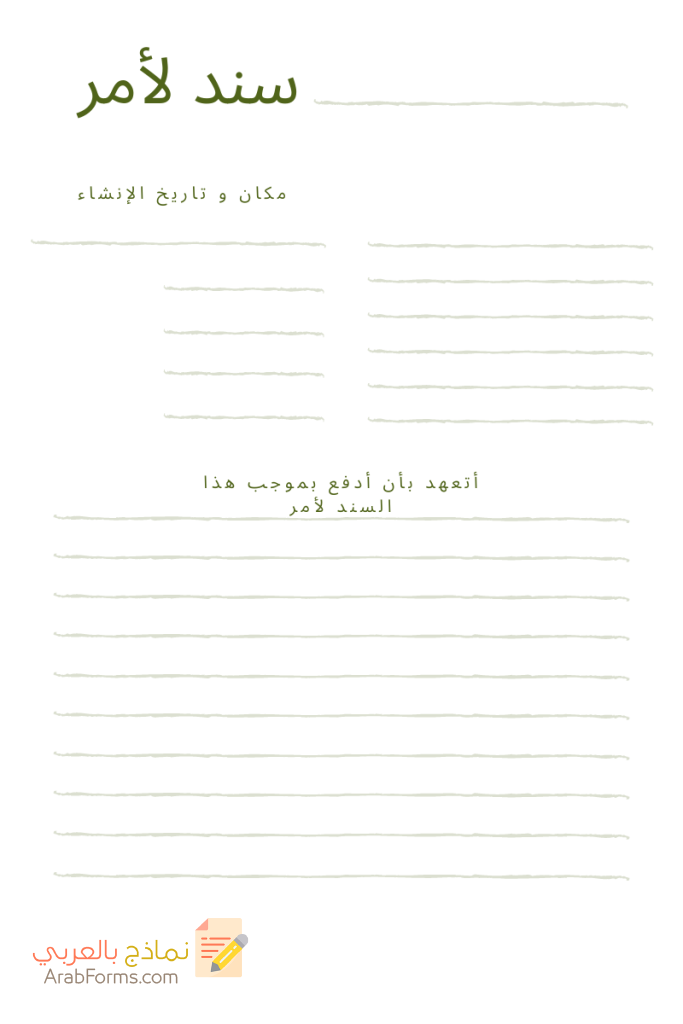 سند لأمر
مكان و تاريخ الإنشاء
أتعهد بأن أدفع بموجب هذا
السند لأمر
نماذج بالعربي
ArabForms.com